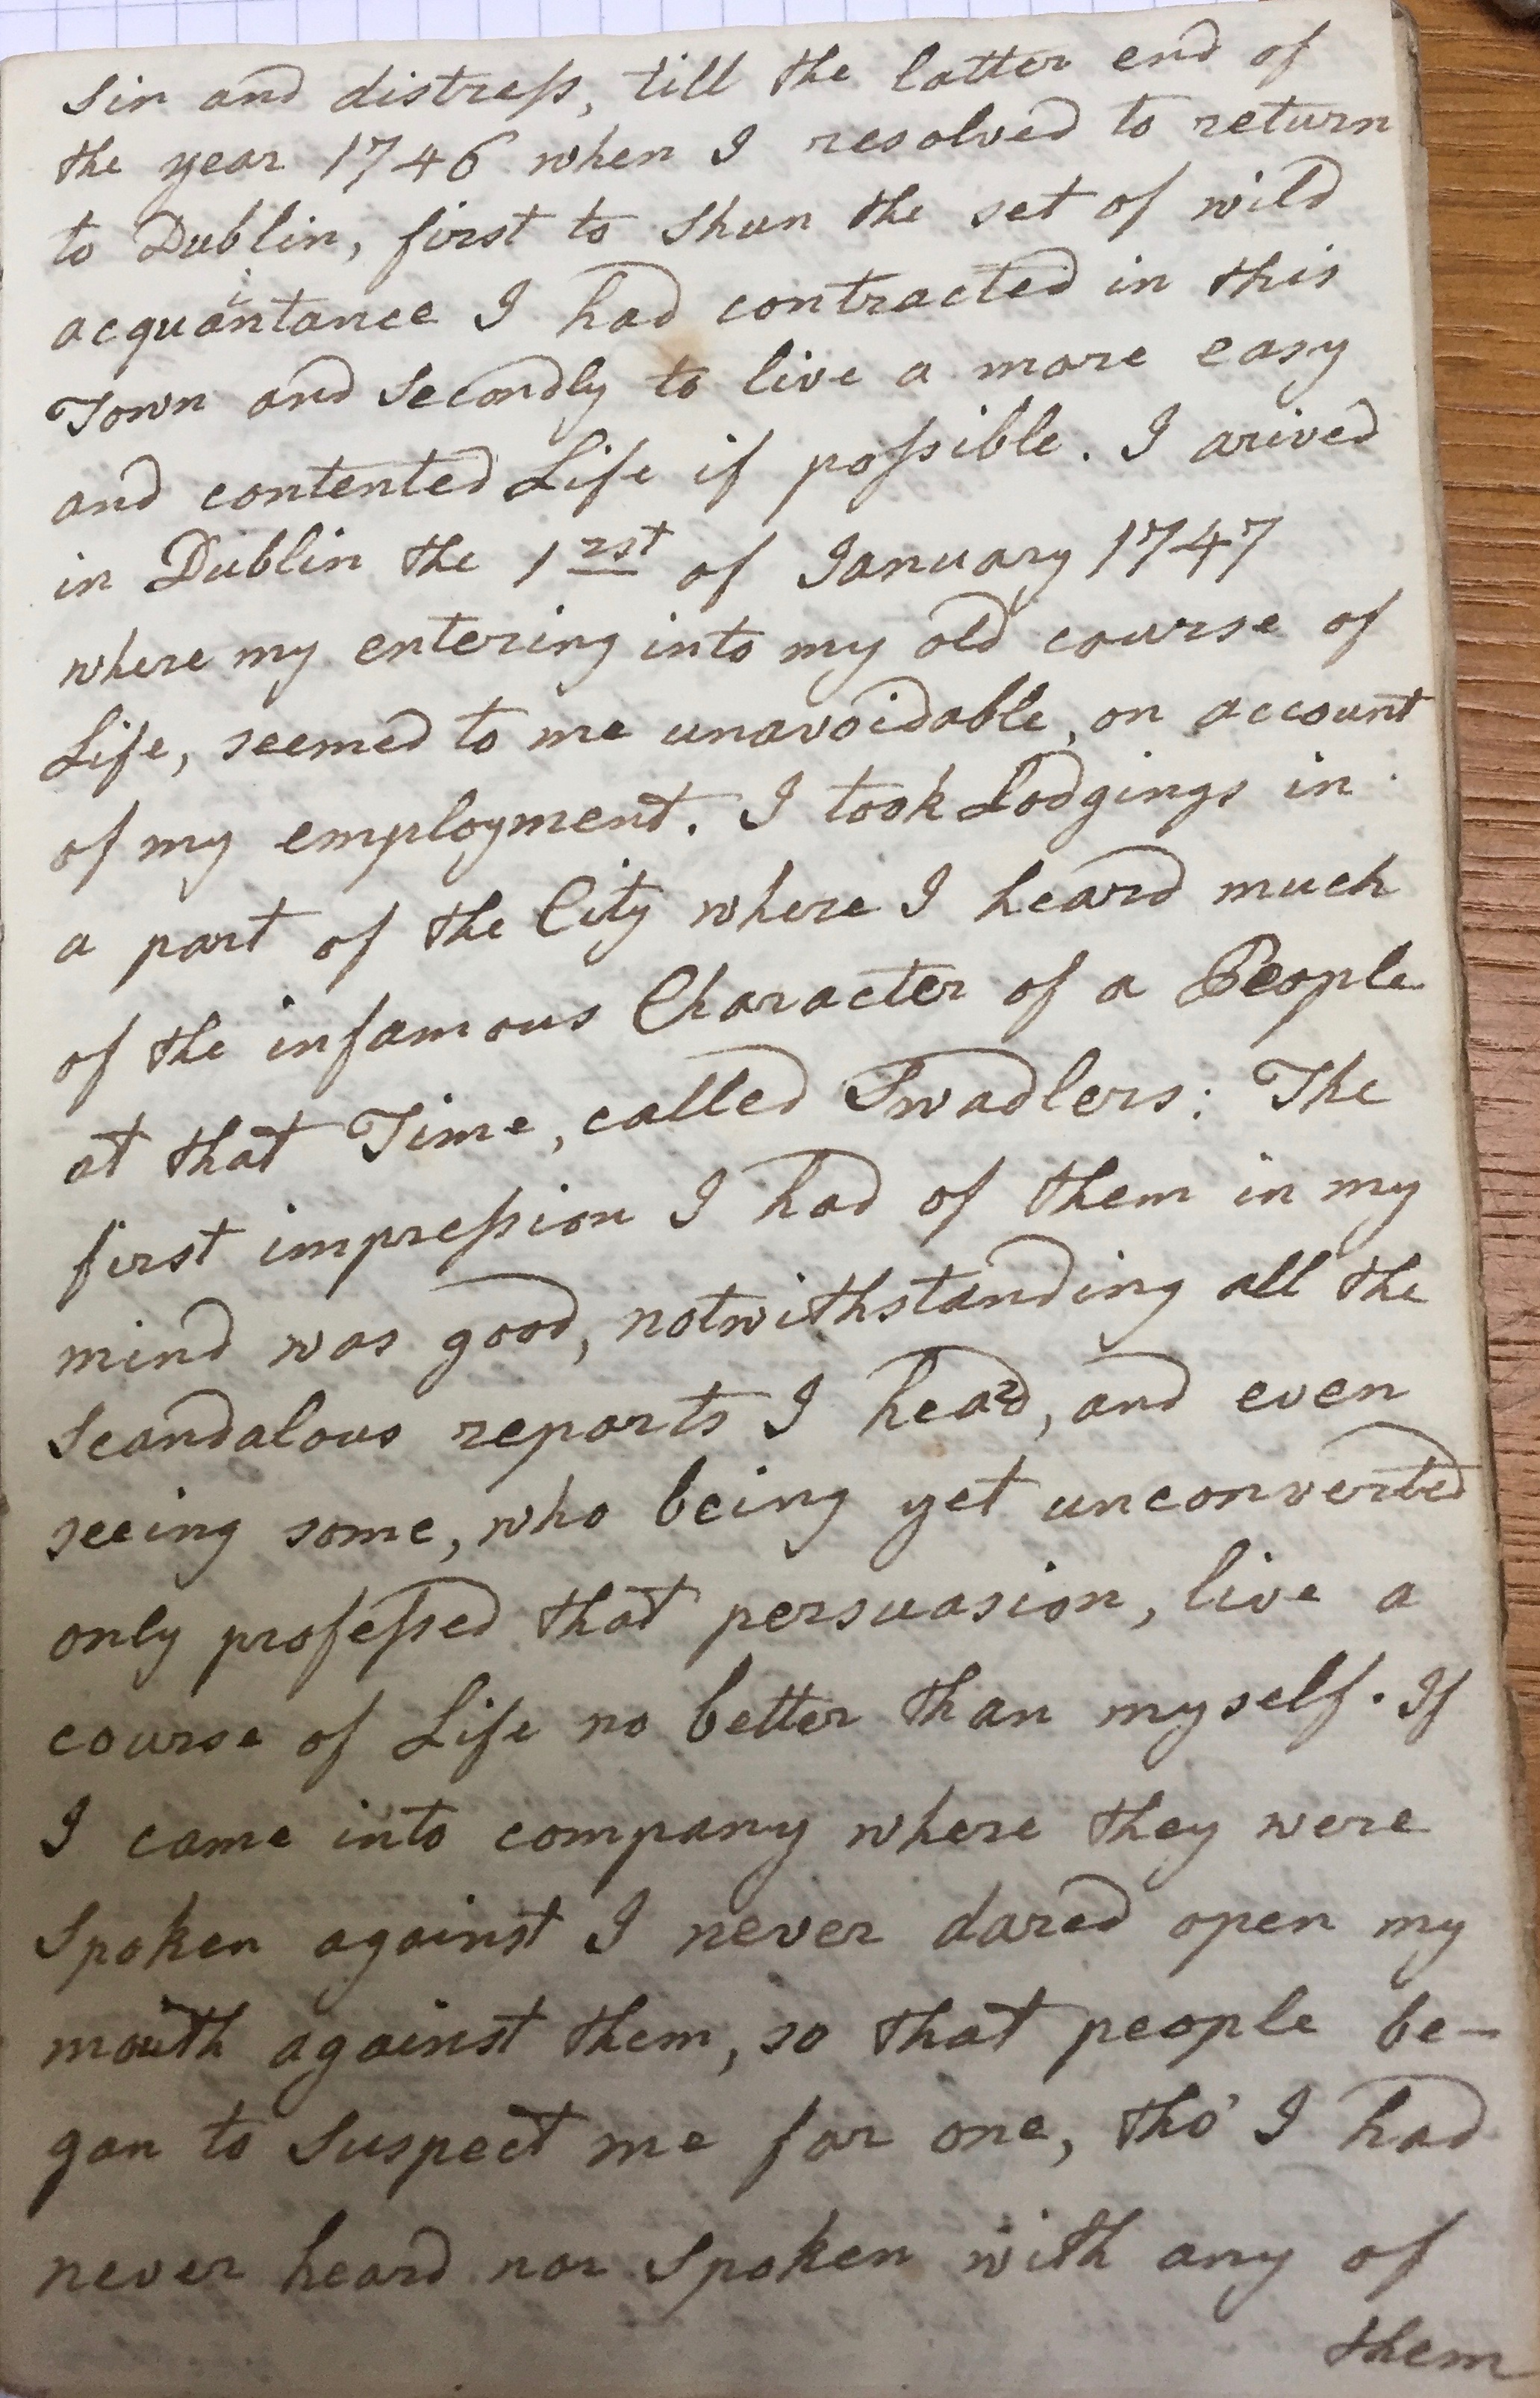 Sin and distress, till the latter end of
the year 1746 when I resolved to return
to Dublin, first to Shun the set of wild
acquaintance I had contracted in this
Town and Secondly to live a more easy
and contented Life if possible. I arived
in Dublin the 1rst of January 1747
where my entering into my old course of
Life, seemed to me unavoidable, on account
of my employment. I took Lodgings in
a part of the City where I heard much
of the infamous Character of a People
at that Time, called Swadlers: The
first impression I had of them in my
mind was good, notwithstanding all the
Scandalous reports I heard, and even
seeing some, who being yet unconverted
only professed that persuasion, live a
course of Life no better than myself. If
I came into company where they were
Spoken against I never dared open my
mouth against them, so that people be-
gan to Suspect me for one, tho' I had
never heard nor Spoken with any of
them